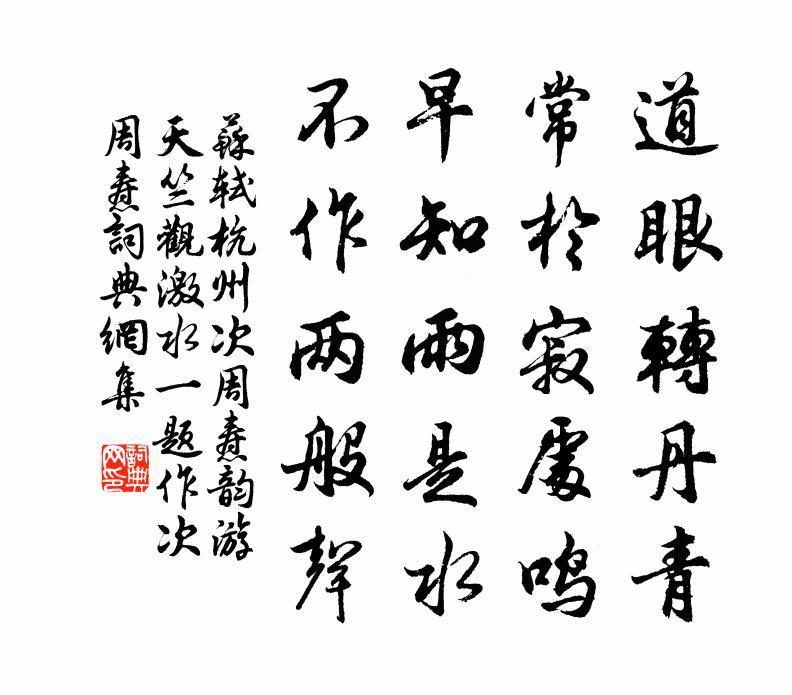 道眼轉丹青
常於寂處鳴
早知雨是水
不作两般聲
蘇軾杭州次周燾韵游
天竺觀激水一题作次
周燾詞典網集
詞典网印